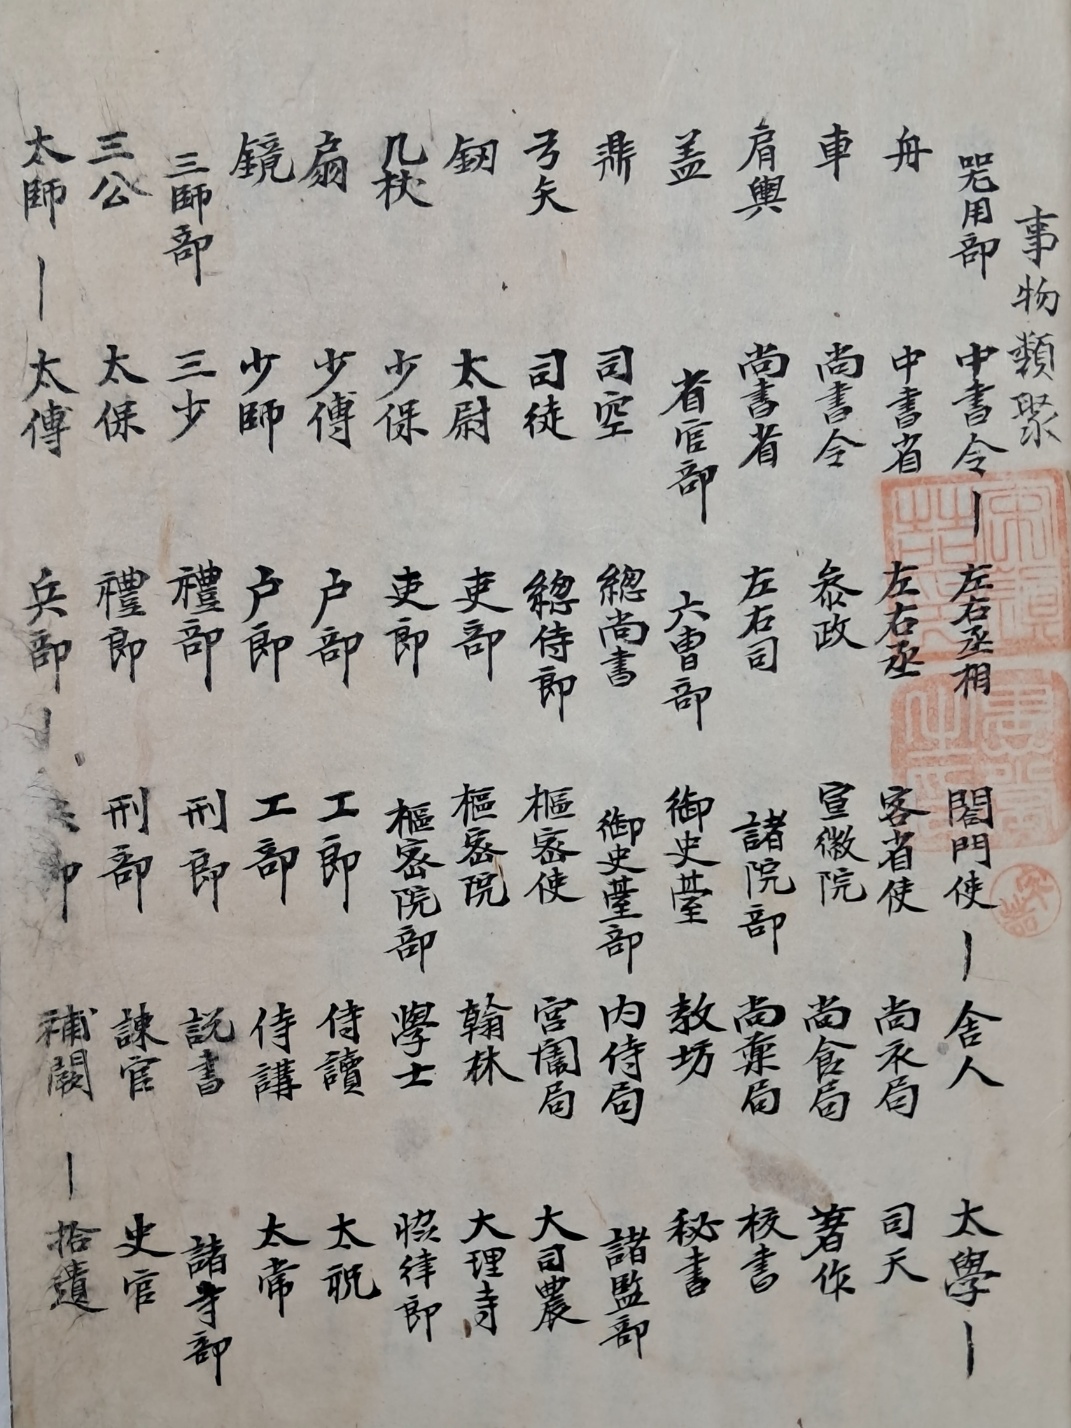 事物類聚
器用部 中書令 左右丞相 閤門使 舍人 太學
舟 中書省 左右丞 客省使 尚衣局 司天
車 尚書令 叅政 宣徽院 尚食局 著作
肩輿 尚書省 左右司 諸院部 尚藥局 校書
盖 省官部 六曺部 御史臺 教坊 秘書
鼎 司空 總尚書 御史臺部 内侍局 諸監部
弓矢 司徒 總侍郎 樞密使 宮闈局 大司農
劒 太尉 吏部 樞密院 翰林 大理寺
几杖 少保 吏郎 樞密院部 學士 恊律郎
扇 少傅 户部 工郎 侍讀 太祝
鏡 少師 户郎 工部 侍講 太常
三師部 三少 禮部 刑郎 説書 諸寺部
三公 太保 禮郎 刑部 諫官 史官
太師 太傅 兵部 補闕 拾遺